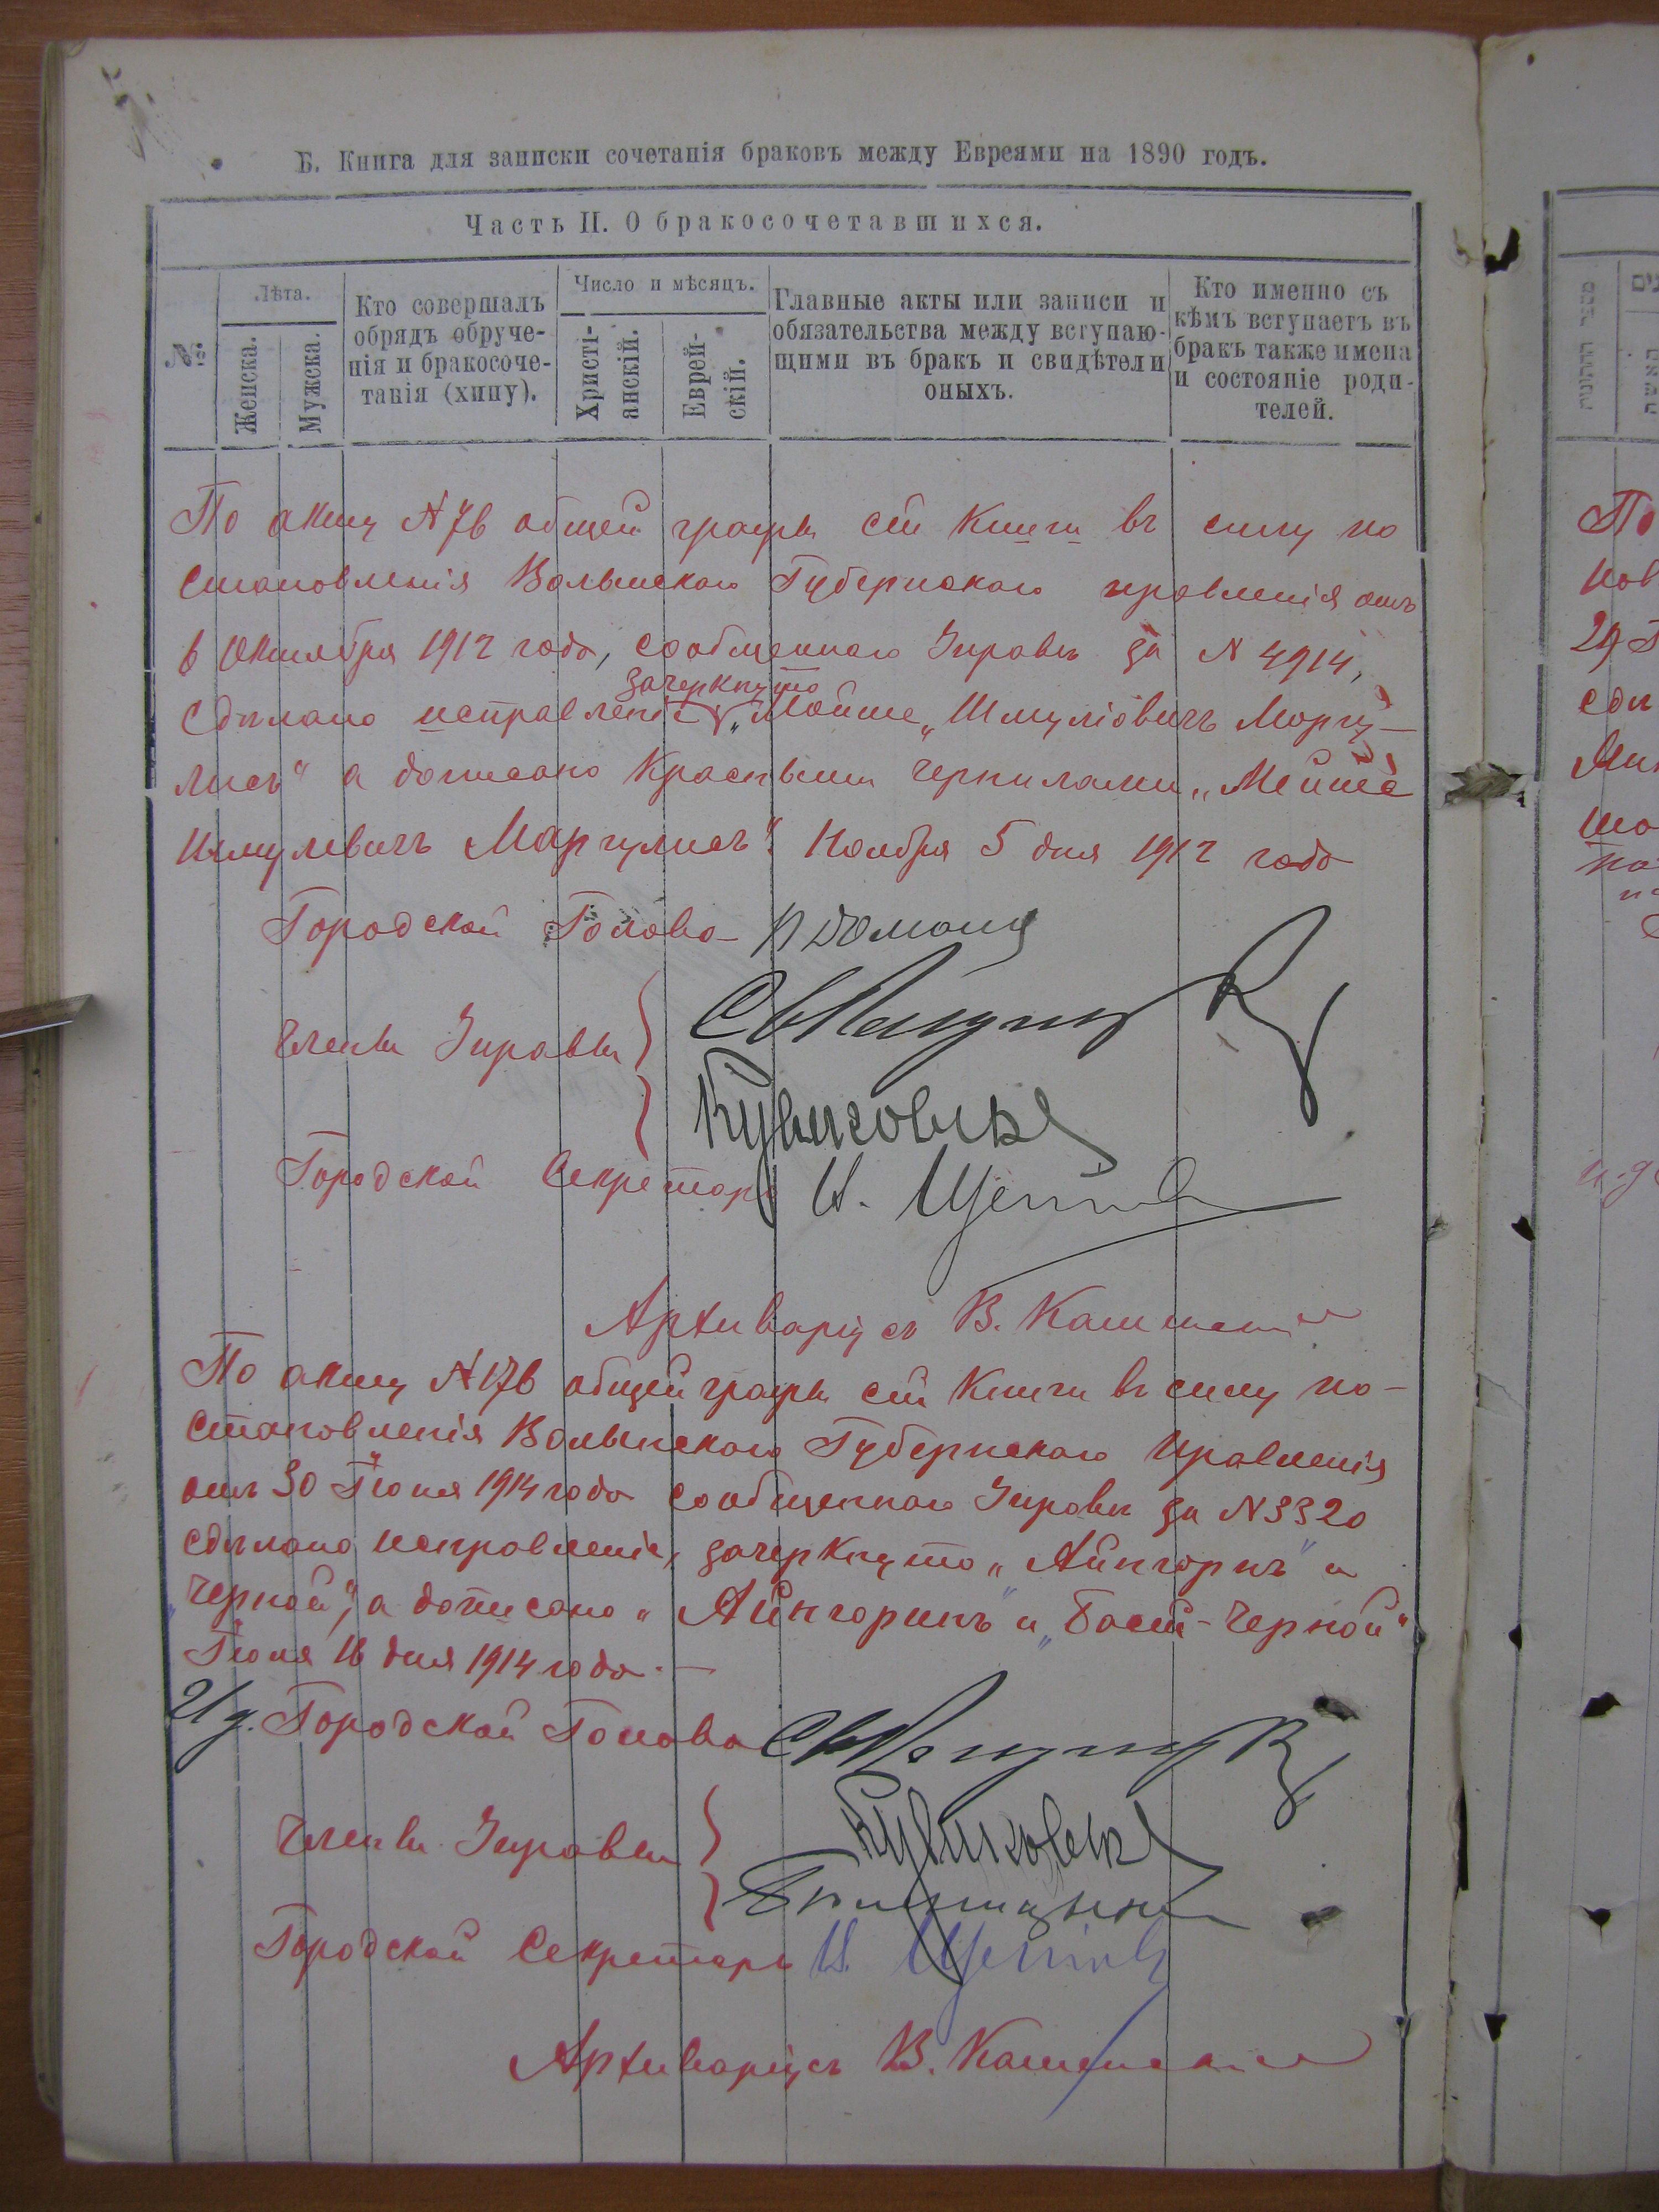 Б. Книга для записки сочетанія браковъ между Евреями на 1890 годъ.
Часть II. О бракосочетавшихся.
№
Лѣта.
Женска.
Мужска.
Кто совершалъ
обрядъ обруче-
нія и бракосоче-
танія (хипу).
Число и мѣсяцъ.
Христі-
анскій.
Еврей-
скій.
Главные акты или записи и
обязательства между вступаю-
щими въ бракъ и свидѣтели
оныхъ.
Кто именно съ
кѣмъ вступаетъ въ
бракъ также имена
и состояніе роди-
телей.
По акту № 76 общей графы сей Книги въ силу по
становленія Волынскаго Губернскаго правленія отъ
6 Октября 1912 года, сообщеннаго Управѣ за № 4914,
зачеркнуто
Сдѣлано исправленіе „Мойше „Шмуліовичъ Моргу-
лисъ" а дописано Красными чернилами „Мейше
Шмулевичъ Маргулисъ". Ноября 5 дня 1912 года
Городской Голова
Члены Управы
Городской Секретарь
Архиваріусъ В.
По акту № 176 общей графы сей Книги въ силу по-
становленія Волынскаго Губернскаго Правленія
отъ 30 Іюня 1914 года сообщеннаго Управѣ за № 3320
сдѣлано исправленіе, зачеркнуто „Айнгорнъ" и
„Черной", а дописано „Айнгоринъ" и „Басей-Черной"
Іюля 16 дня 1914 года.—
И д. Городской Голова
Члены Управы
Городской Секретарь
Архиваріусъ В.
По
нов
29
сдѣ